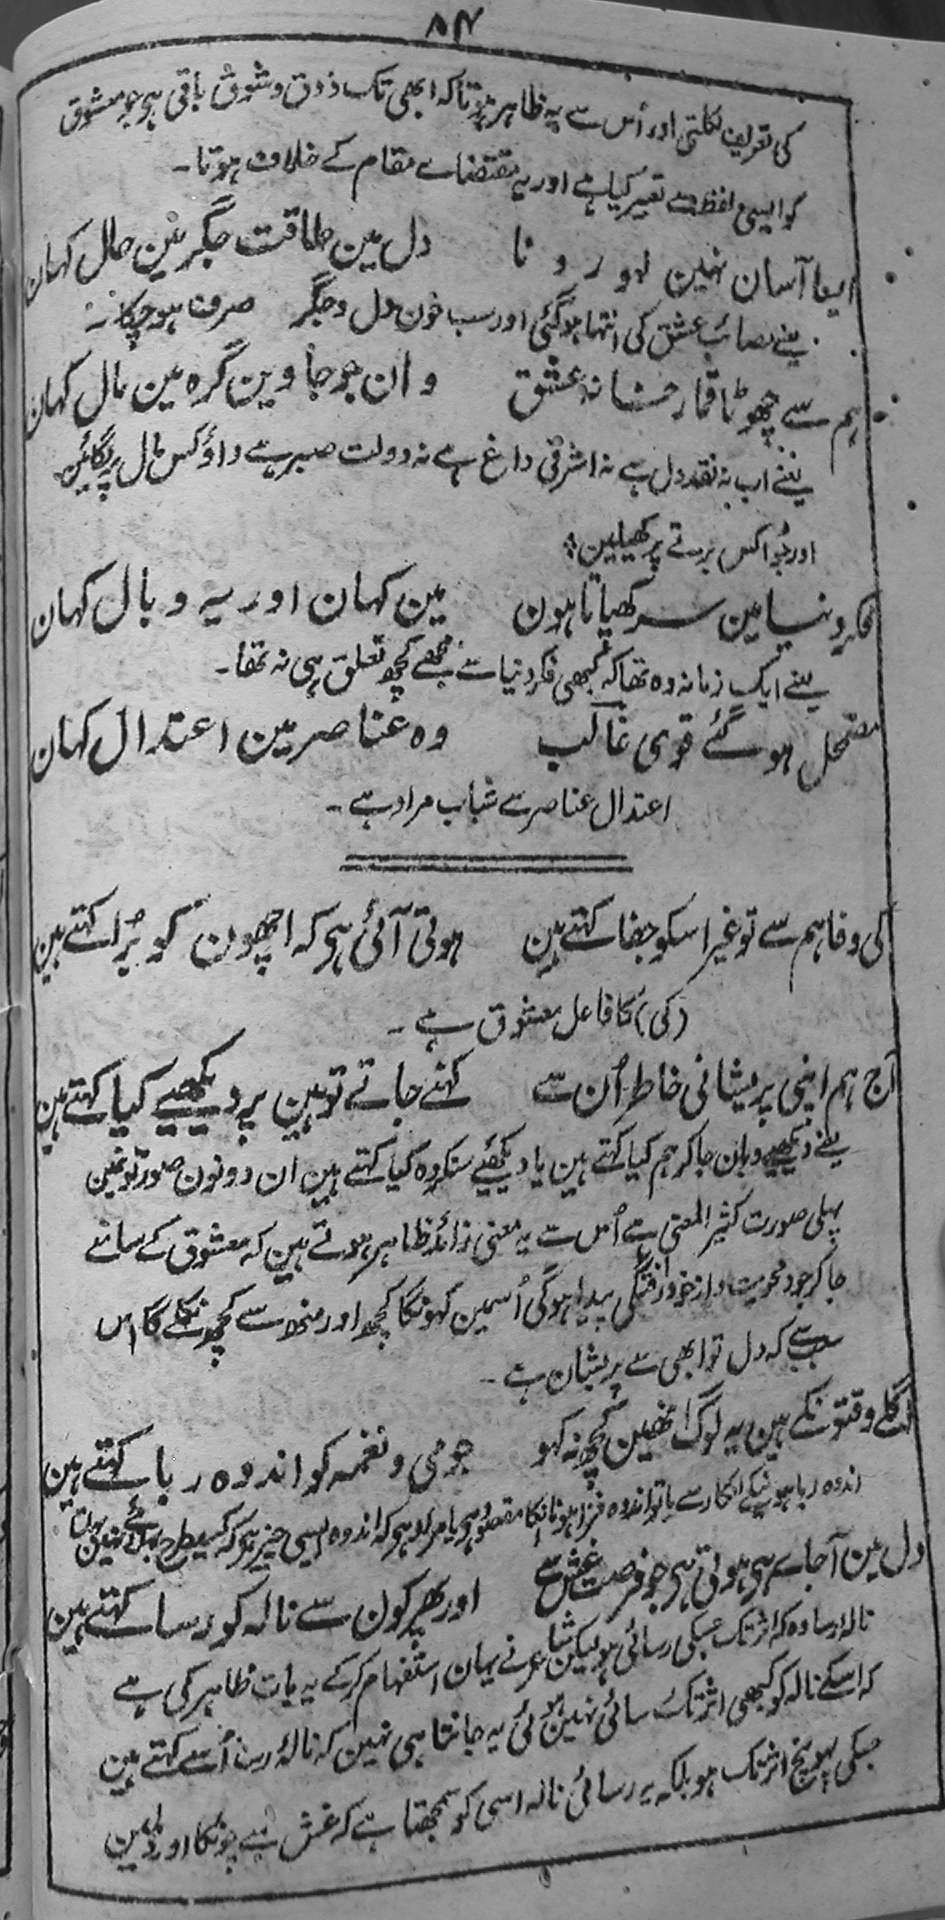 ۸۴
کی تعریف نکلتی اور اُس سے یہ ظاہر ہوتا کہ ابھی تک ذوق و شوق باقی ہی جو معشوق
کو ایسی لفظ سے تعبیر کیا ہے اور یہ مقتضاے مقام کے خلاف ہوتا ۔
ایسا آسان نہین لہو رونا دل مین طاقت جگر مین حال کہان
یعنے مصائب عشق کی انتہا ہو گئی اور سب خون دل و جگر صرف ہو چکا ۔
ہم سے چھوٹا قمار خانۂ عشق وان جو جاوین گرہ مین مال کہان
یعنے اب نہ نقد دل ہے نہ اشرفی داغ ہے نہ دولت صبر ہے داؤ کس مال پر لگائین
اور جُوا کس برتے پر کھیلین
فکر دنیا مین سر کھپاتا ہون مین کہان اور یہ وبال کہان
یعنے ایک زمانہ وہ تھا کہ کبھی فکر دنیا سے مجھے کچھ تعلق ہی نہ تھا ۔
مضمحل ہو گئے قوی غالب وہ عناصر مین اعتدال کہان
اعتدال عناصر سے شباب مراد ہے ۔
کی وفا ہم سے تو غیر اسکو جفا کہتے ہین ہوتی آئی ہی کہ اچھون کو بُرا کہتے ہین
(کی) کا فاعل معشوق ہے ۔
آج ہم اپنی پریشانی خاطر اُن سے کہنے جاتے تو ہین پر دیکھیے کیا کہتے ہین
یعنے دیکھیے وہان جا کر ہم کیا کہتے ہین یا دیکھئے سنکر وہ کیا کہتے ہین ان دونون صورتونمین
پہلی صورت کثیر المعنی ہے اُس سے یہ معنی زائد ظاہر ہوتے ہین کہ معشوق کے سامنے
جا کر جو محویت و از خود رفتگی پیدا ہوگی اُسمین کہونگا کچھ اور منھ سے کچھ نکلے گا اس
سبب سے کہ دل تو ابھی سے پریشان ہے ۔
اگلے وقتونکے ہین یہ لوگ انھین کچھ نہ کہو جو می و نغمہ کو اندوہ ربا کہتے ہین
اندوہ ربا ہونیکے انکار سے یا تو اندوہ فزا ہونا انکا مقصود ہی یا مراد ہو کہ اندوہ ایسی چیز ہی کہ کسیطرح
دل مین آجاے ہی ہوتی ہی جو فرصت غش سے اور پھر کون سے نالہ کو رسا کہتے ہین
نالہ رسا وہ کہ اثر تک جسکی رسائی ہو لیکن شاعر نے یہان استفہام کرکے یہ بات ظاہر کی ہے
کہ اسکے نالہ کو کبھی اثر تک رسائی نہین ہوئی یہ جانتا ہی نہین کہ نالۂ رسا اُسے کہتے ہین
جسکی پہونچ اثر تک ہو بلکہ یہ رسائی نالہ اسی کو سمجھتا ہے کہ غش سے چونکا اور دلمین